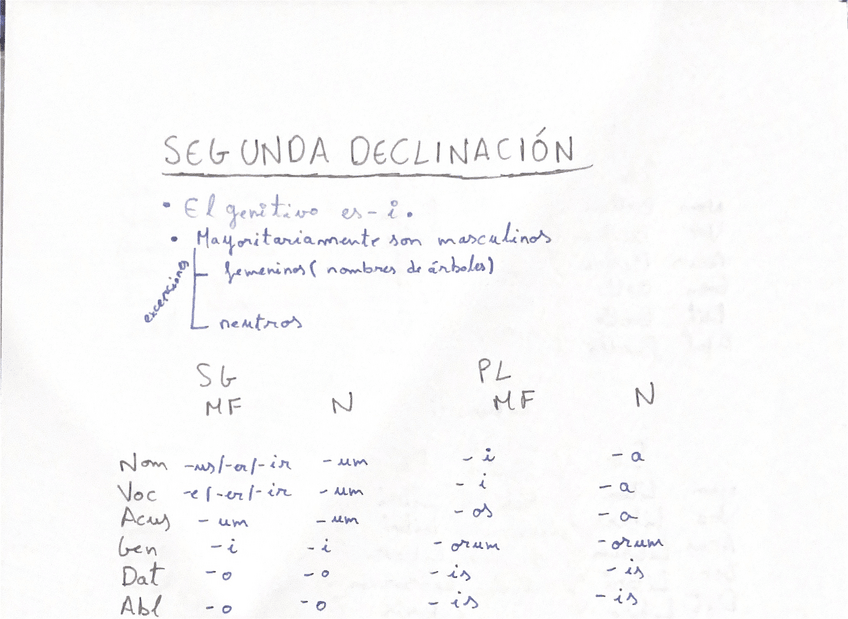 SEGUNDA DECLINACIÓN
• El genitivo es -i.
• Mayoritariamente son masculinos
excenciones
femeninos (nombres de árboles)
neutros
SG PL
MF N MF N
Nom -us/-er/-ir -um -i -a
Voc -e/-er/-ir -um -i -a
Acus -um -um -os -a
Gen -i -i -orum -orum
Dat -o -o -is -is
Abl -o -o -is -is